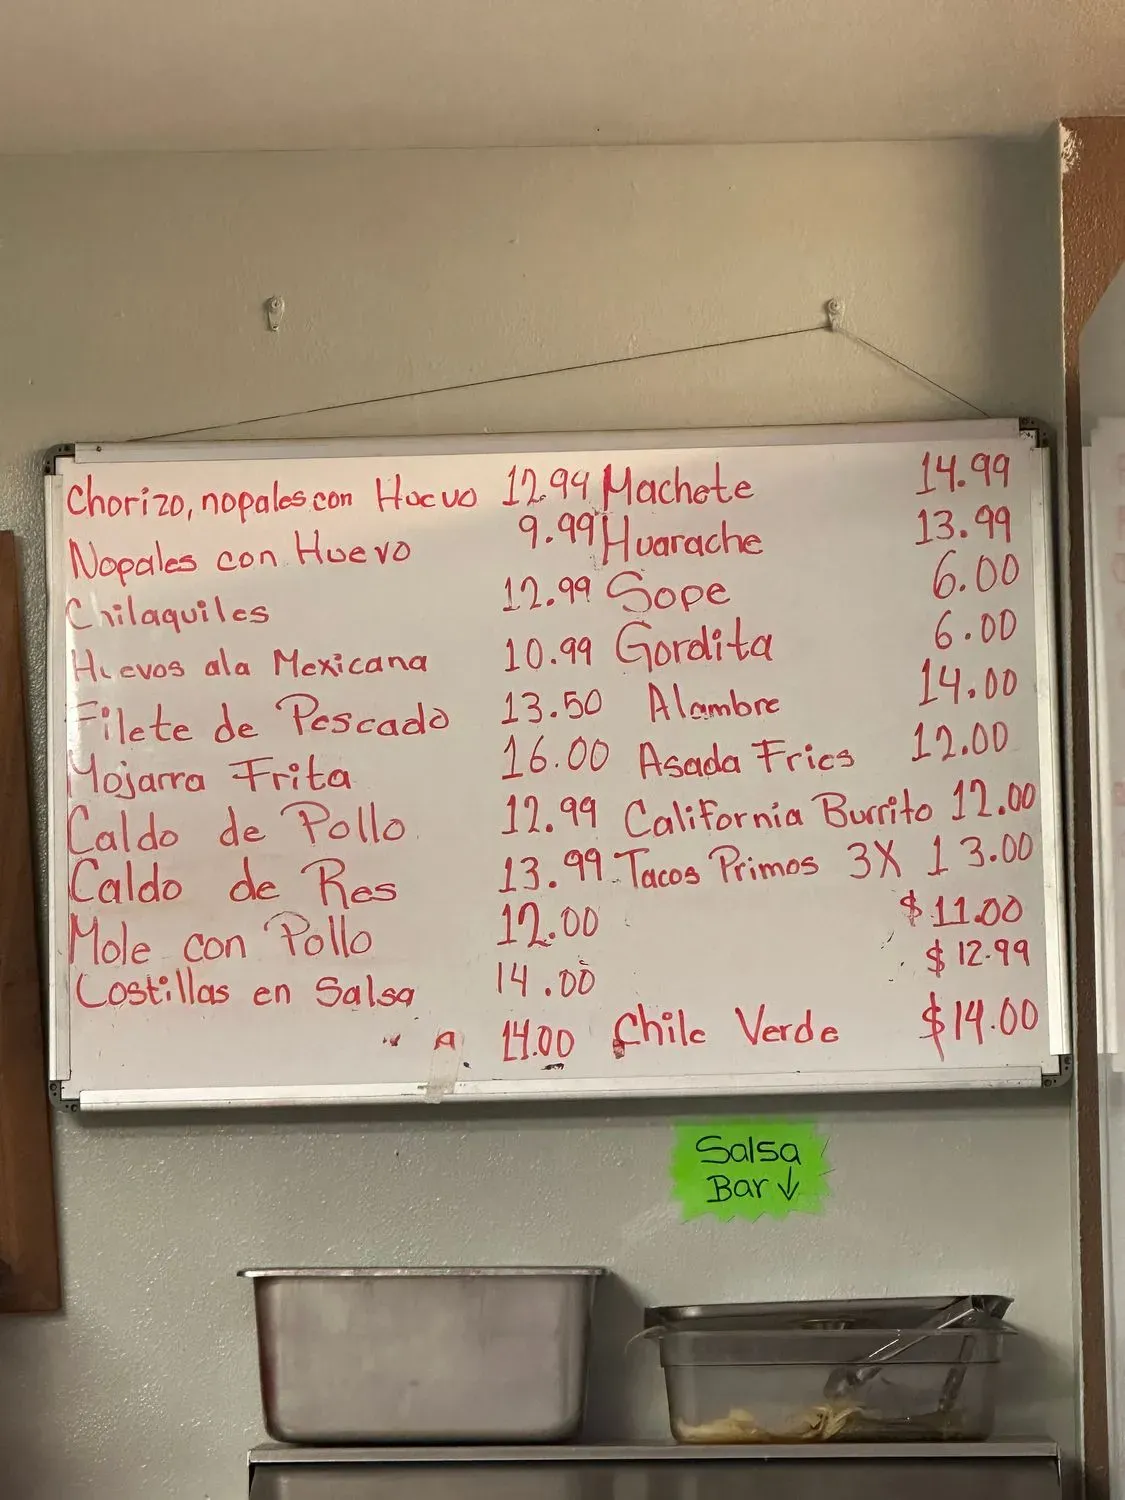 Chorizo, nopales con Huevo 12.99
Nopales con Huevo 9.99
Chilaquiles 12.99
Huevos ala Mexicana 10.99
Filete de Pescado 13.50
Mojarra Frita 16.00
Caldo de Pollo 12.99
Caldo de Res 13.99
Mole con Pollo 12.00
Costillas en Salsa 14.00
A 14.00
Machete 14.99
Huarache 13.99
Sope 6.00
Gordita 6.00
Alambre 14.00
Asada Fries 12.00
California Burrito 12.00
Tacos Primos 3X 13.00
$11.00
$12.99
Chile Verde $14.00
Salsa
Bar ↓